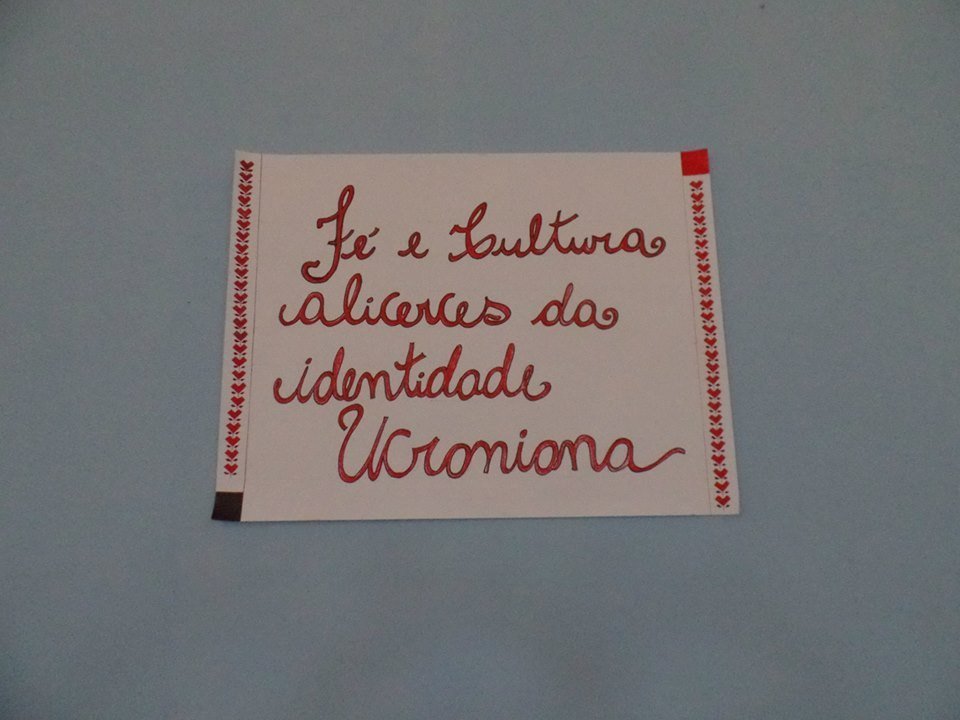 Fé e Cultura
alicerces da
identidade
Ucraniana